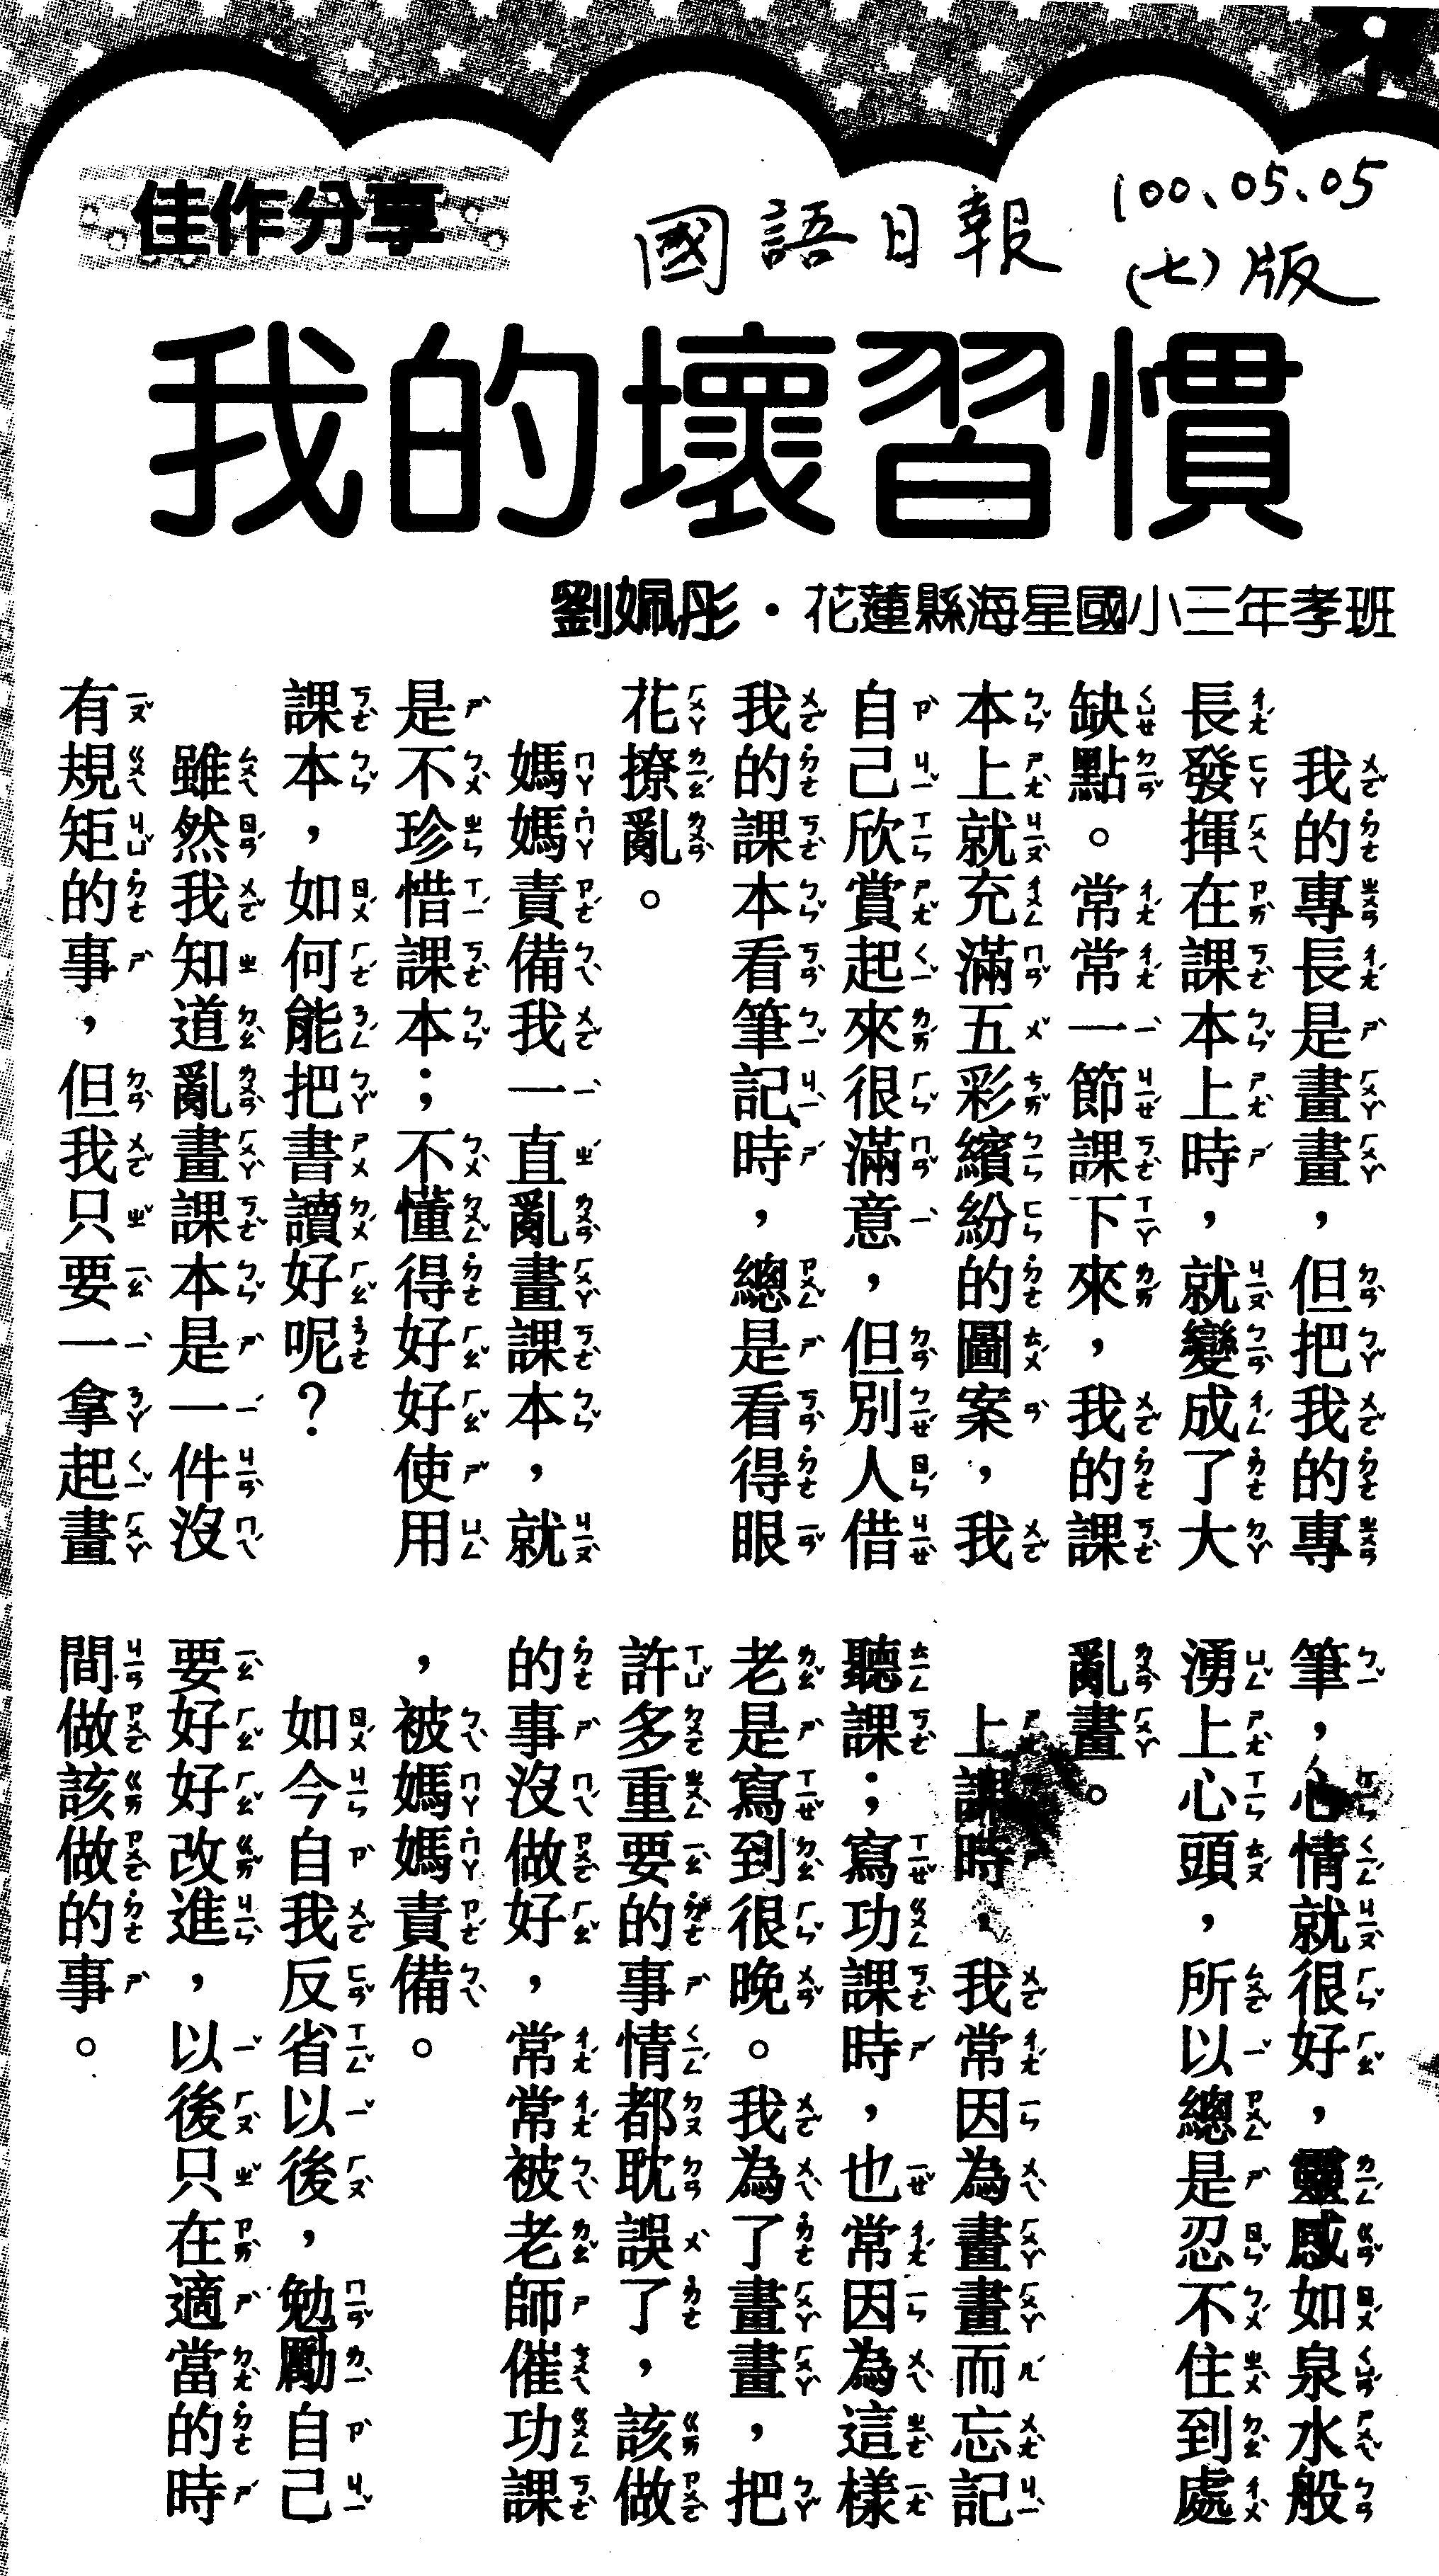 佳作分享
國語日報
100、05、05
(七)版
我的壞習慣
劉姵彤・花蓮縣海星國小三年孝班
我的專長是畫畫，但把我的專
長發揮在課本上時，就變成了大
缺點。常常一節課下來，我的課
本上就充滿五彩繽紛的圖案，我
自己欣賞起來很滿意，但別人借
我的課本看筆記時，總是看得眼
花撩亂。
媽媽責備我一直亂畫課本，就
是不珍惜課本；不懂得好好使用
課本，如何能把書讀好呢？
雖然我知道亂畫課本是一件沒
有規矩的事，但我只要一拿起畫
筆，心情就很好，靈感如泉水般
湧上心頭，所以總是忍不住到處
亂畫。
上課時，我常因為畫畫而忘記
聽課；寫功課時，也常因為這樣
老是寫到很晚。我為了畫畫，把
許多重要的事情都耽誤了，該做
的事沒做好，常常被老師催功課
，被媽媽責備。
如今自我反省以後，勉勵自己
要好好改進，以後只在適當的時
間做該做的事。